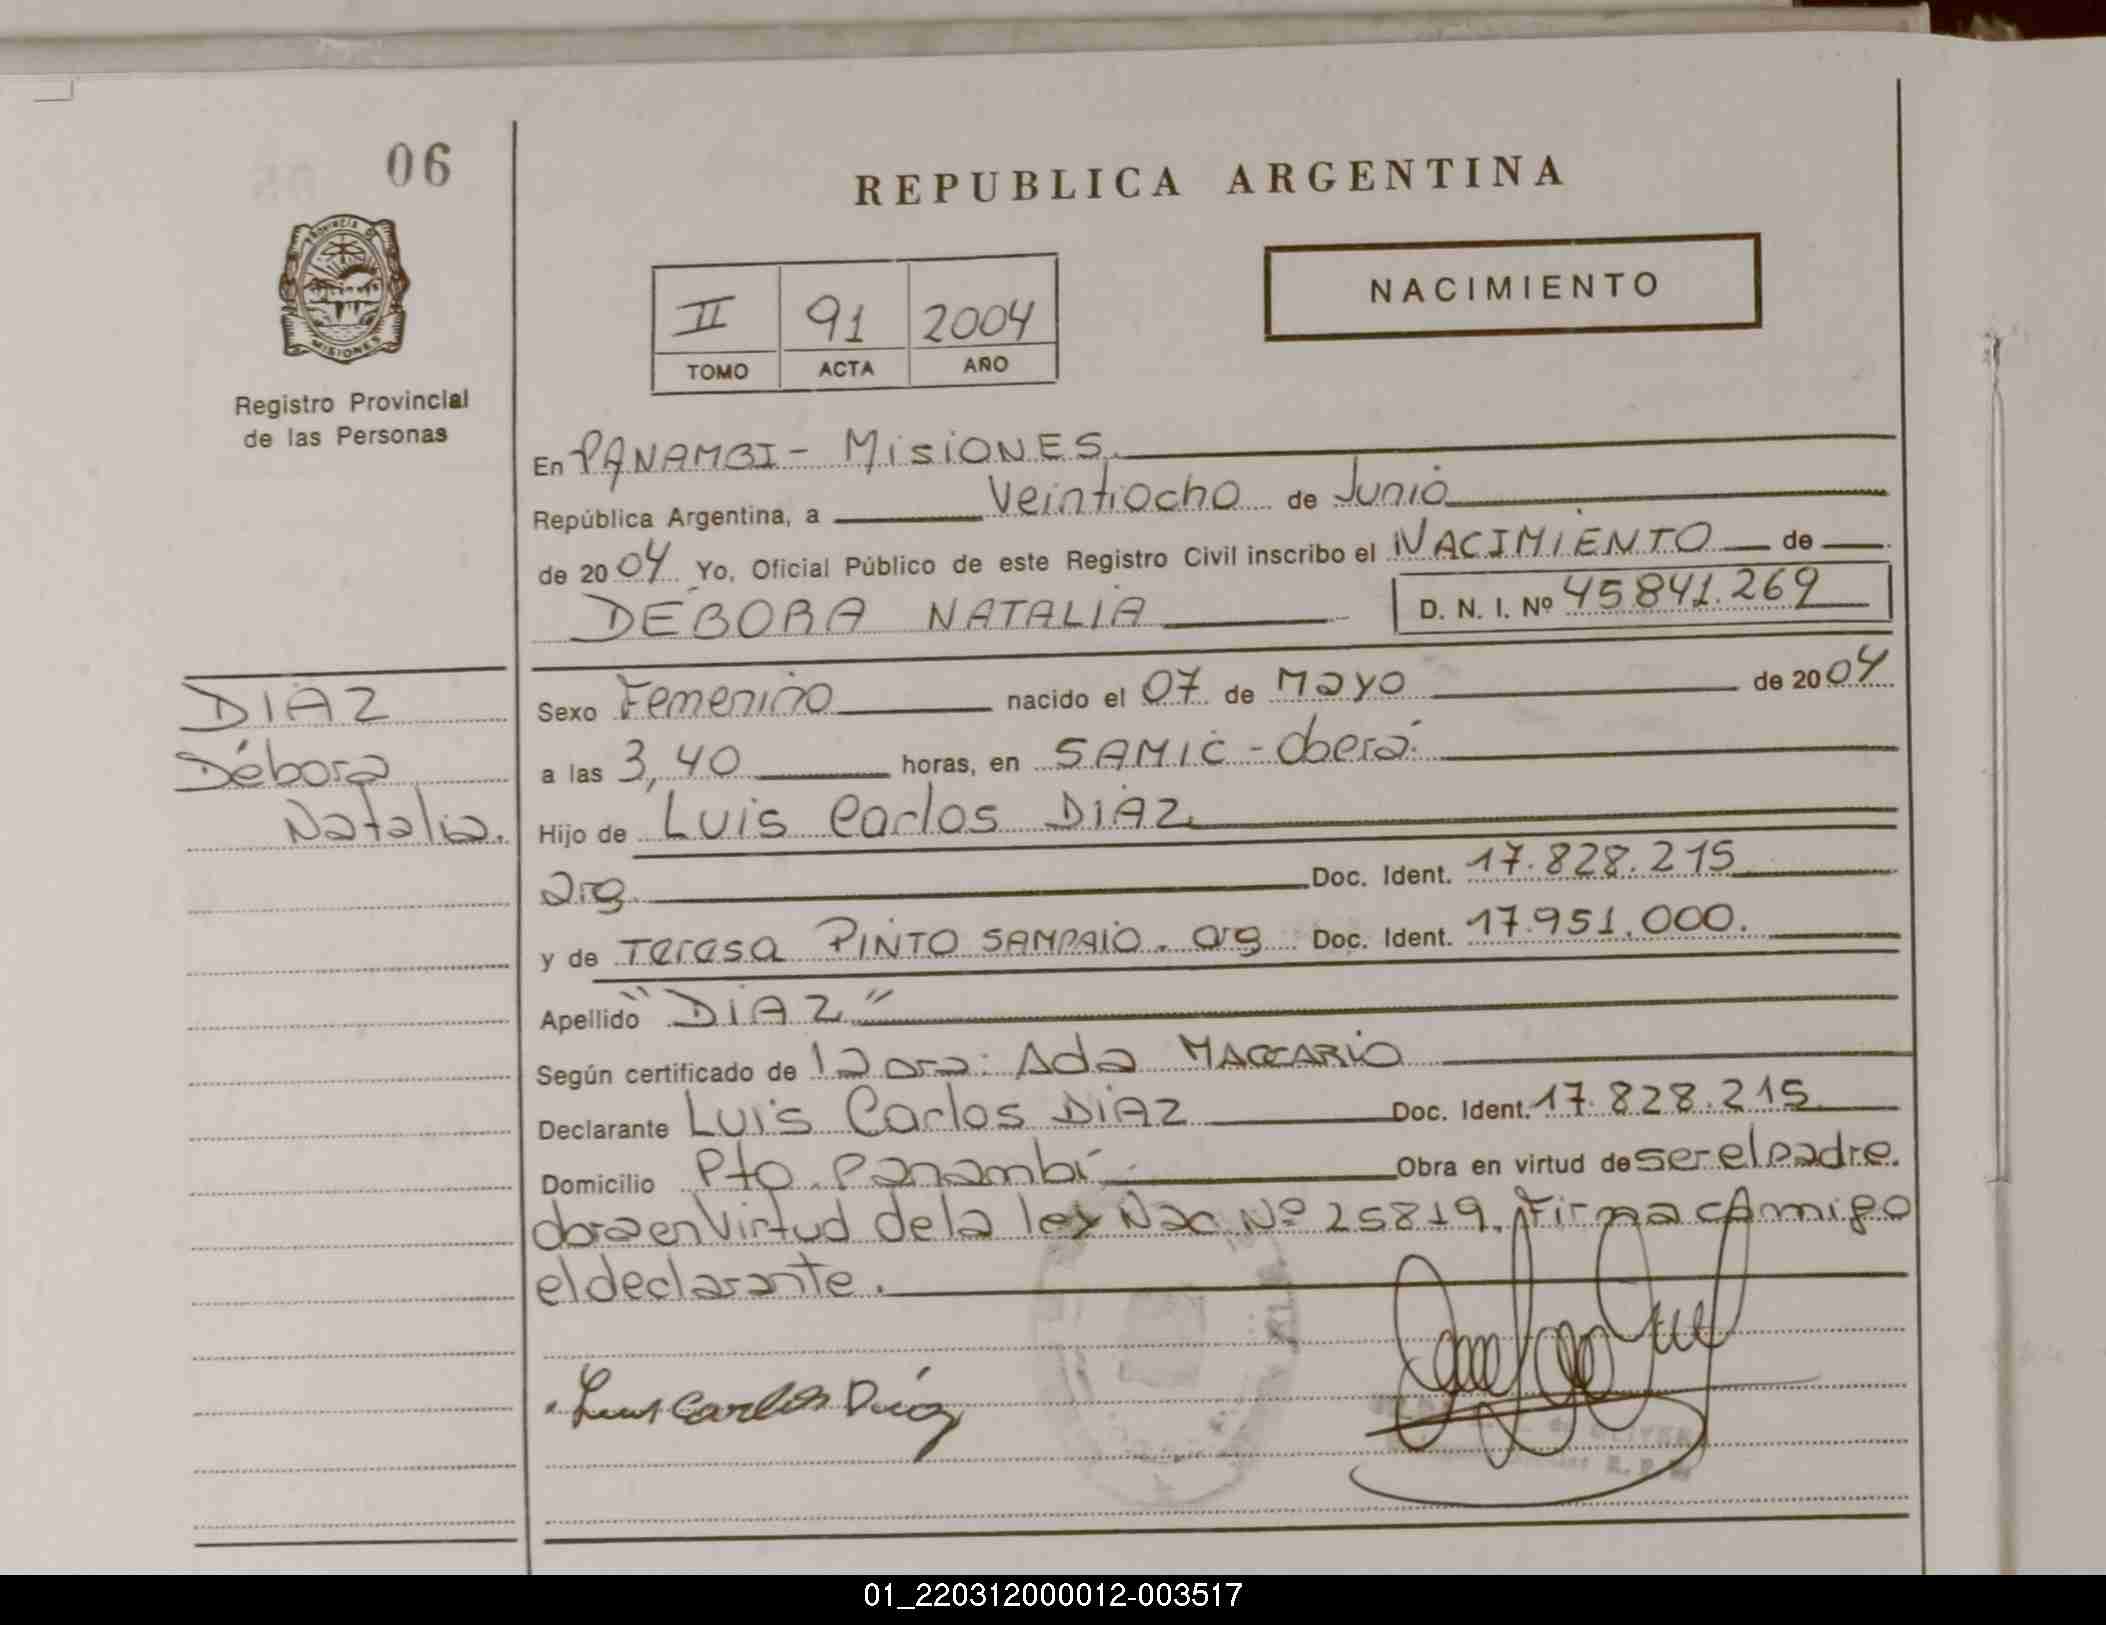 06
REPUBLICA ARGENTINA
NACIMIENTO
II 91 2004
TOMO ACTA AÑO
PROVINCIA DE
MISIONES
Registro Provincial
de las Personas
En PANAMBI - MISIONES
República Argentina, a Veintiocho de Junio
de 2004 Yo, Oficial Público de este Registro Civil inscribo el NACIMIENTO de
DÉBORA NATALIA D. N. I. Nº 45841.269
DIAZ
Débora
Natalia.
Sexo Femenino nacido el 07 de Mayo de 2004
a las 3,40 horas, en SAMIC - Oberá.
Hijo de Luis Carlos DIAZ
arg. Doc. Ident. 17.828.215
y de Teresa PINTO SAMPAIO. arg Doc. Ident. 17.951.000.
Apellido "DIAZ"
Según certificado de la Dra: Ada MACCARIO
Declarante Luis Carlos DIAZ Doc. Ident. 17.828.215
Domicilio Pto. Panambí Obra en virtud de ser el padre.
obra en Virtud de la ley Nac Nº 25819. Firma c/migo
el declarante.
Luis Carlos Díaz
01_220312000012-003517